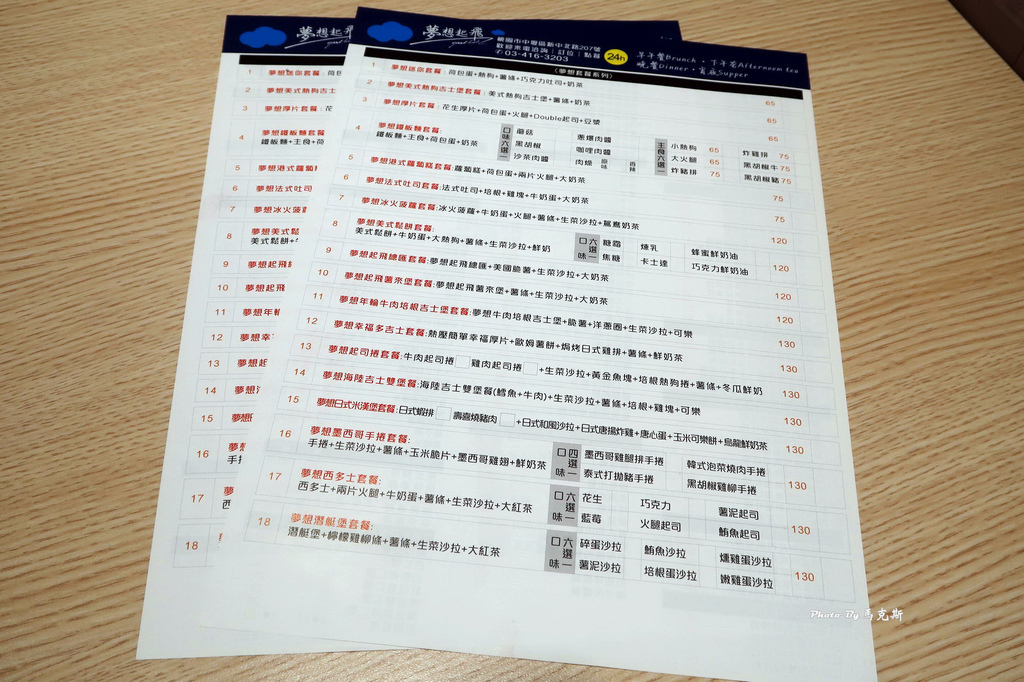 夢想起飛
桃園市中壢區新中北路207號
歡迎來電洽詢｜訂位｜點餐
03-416-3203
24h
早午餐Brunch・下午茶Afternoon tea
晚餐Dinner・宵夜Supper
《夢想套餐系列》
1 夢想迷你套餐:荷包蛋+熱狗+薯條+巧克力吐司+奶茶 65
2 夢想美式熱狗吉士堡套餐:美式熱狗吉士堡+薯條+奶茶 65
3 夢想厚片套餐:花生厚片+荷包蛋+火腿+Double起司+豆漿 65
4 夢想鐵板麵套餐:
鐵板麵+主食+荷包蛋+奶茶
口味六選一 蘑菇 蔥爆肉醬
黑胡椒 咖哩肉醬
沙茶肉醬 肉燥 原味 香辣
主食六選一 小熱狗 65 炸雞排 75
大火腿 65 黑胡椒牛 75
炸豬排 75 黑胡椒豬 75
5 夢想港式蘿蔔糕套餐:蘿蔔糕+荷包蛋+兩片火腿+大奶茶 75
6 夢想法式吐司套餐:法式吐司+培根+雞塊+牛奶蛋+大奶茶 75
7 夢想冰火菠蘿套餐:冰火菠蘿+牛奶蛋+火腿+薯條+生菜沙拉+鴛鴦奶茶 120
8 夢想美式鬆餅套餐:
美式鬆餅+牛奶蛋+大熱狗+薯條+生菜沙拉+鮮奶
口味六選一 糖霜 煉乳 蜂蜜鮮奶油
焦糖 卡士達 巧克力鮮奶油 120
9 夢想起飛總匯套餐:夢想起飛總匯+美國脆薯+生菜沙拉+大奶茶 120
10 夢想起飛薯來堡套餐:夢想起飛薯來堡+薯條+生菜沙拉+大奶茶 120
11 夢想年輪牛肉培根吉士堡套餐:夢想牛肉培根吉士堡+脆薯+洋蔥圈+生菜沙拉+可樂 130
12 夢想幸福多吉士套餐:熱壓簡單幸福厚片+歐姆薯餅+焗烤日式雞排+薯條+鮮奶茶 130
13 夢想起司捲套餐:牛肉起司捲□雞肉起司捲□+生菜沙拉+黃金魚塊+培根熱狗捲+薯條+冬瓜鮮奶 130
14 夢想海陸吉士雙堡套餐:海陸吉士雙堡餐(鱈魚+牛肉)+生菜沙拉+薯條+培根+雞塊+可樂 130
15 夢想日式米漢堡套餐:日式蝦排□壽喜燒豬肉□+日式和風沙拉+日式唐揚炸雞+唐心蛋+玉米可樂餅+烏龍鮮奶茶 130
16 夢想墨西哥手捲套餐:
手捲+生菜沙拉+薯條+玉米脆片+墨西哥雞翅+鮮奶茶
口味四選一 墨西哥雞腿排手捲 韓式泡菜燒肉手捲
泰式打拋豬手捲 黑胡椒雞柳手捲 130
17 夢想西多士套餐:
西多士+兩片火腿+牛奶蛋+薯條+生菜沙拉+大紅茶
口味六選一 花生 巧克力 薯泥起司
藍莓 火腿起司 鮪魚起司 130
18 夢想潛艇堡套餐:
潛艇堡+檸檬雞柳條+薯條+生菜沙拉+大紅茶
口味六選一 碎蛋沙拉 鮪魚沙拉 燻雞蛋沙拉
薯泥沙拉 培根蛋沙拉 嫩雞蛋沙拉 130
夢想起飛
1 夢想迷你套餐:荷
2 夢想美式熱狗吉士
3 夢想厚片套餐:花
4 夢想鐵板麵套餐
鐵板麵+主食+荷
5 夢想港式蘿蔔
6 夢想法式吐司
7 夢想冰火菠
8 夢想美式鬆
美式鬆餅+
9 夢想起飛
10 夢想起飛
11 夢想年輪
12 夢想幸
13 夢想起
14 夢想
15 夢想
16 夢想
手捲
17 夢
西
18
Photo By 馬克斯